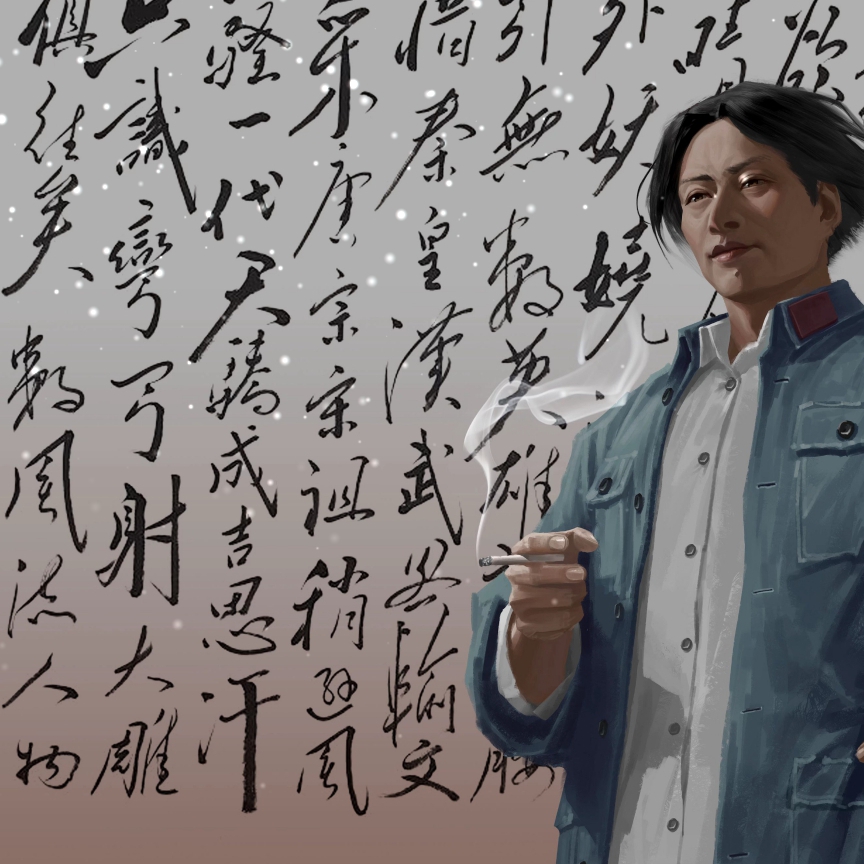 晴日
外妖嬈
引無數英雄
腰
惜秦皇漢武畧輸文
采唐宗宋祖稍遜風
騷一代天驕成吉思汗
只識彎弓射大雕
俱往矣數風流人物